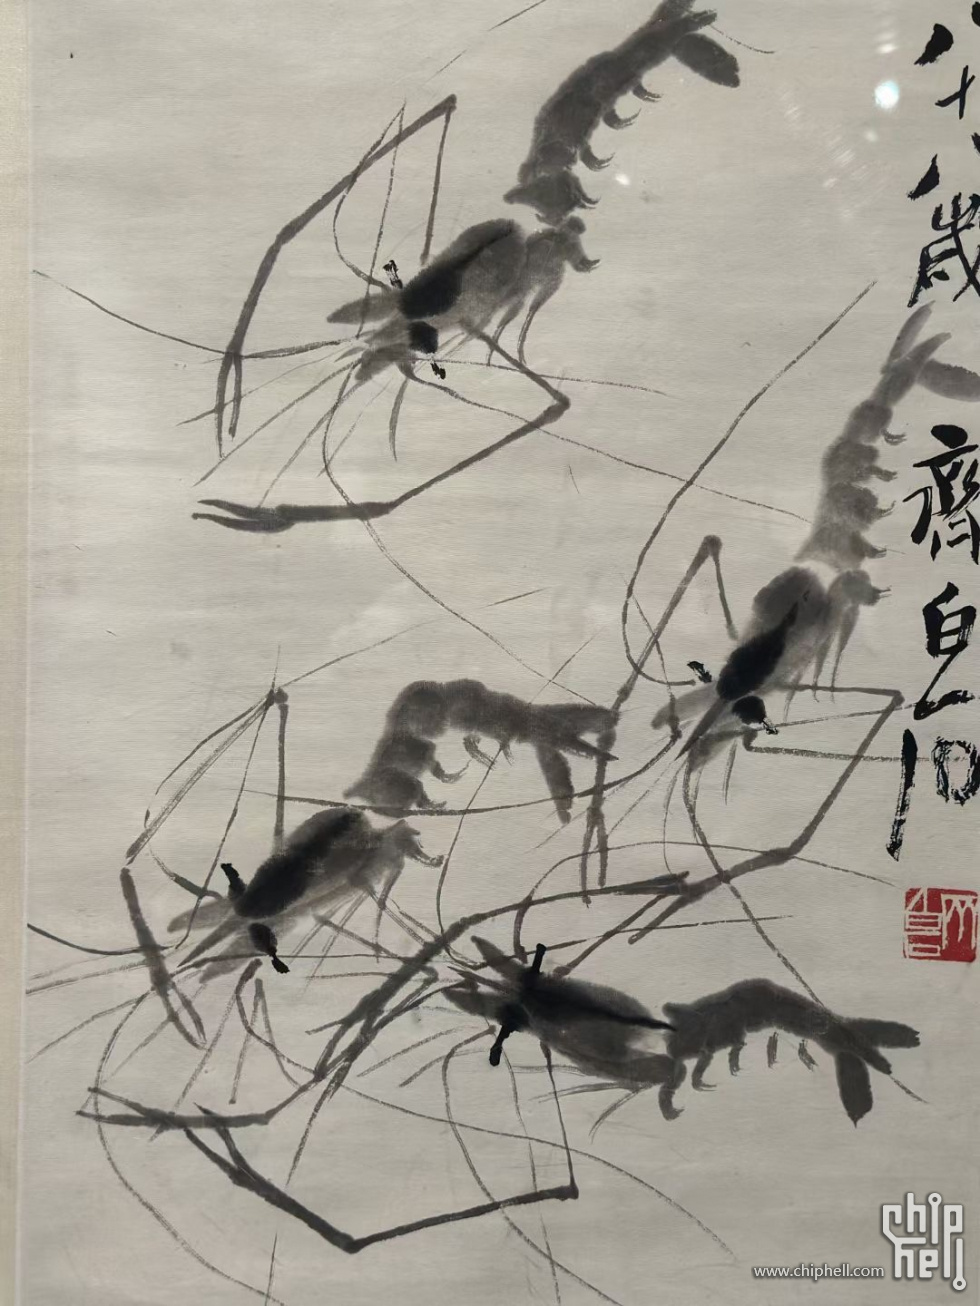 八十八歲
齊白石
chip
hell
www.chiphell.com